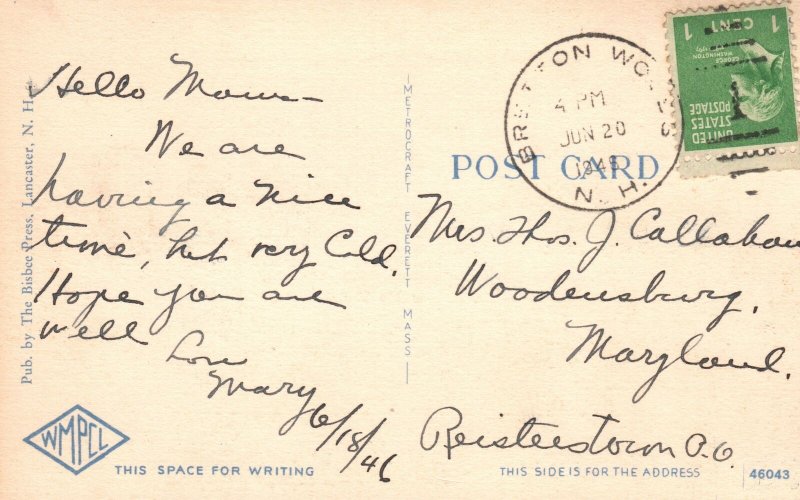 Hello Mom—
We are
having a nice
time, but very Cold.
Hope you are
well
Love
Mary
6/18/46
Pub. by The Bisbee Press, Lancaster, N. H.
WMPCL
THIS SPACE FOR WRITING
METROCRAFT EVERETT MASS
BRETTON WOODS
4 PM
JUN 20
1946
N. H.
1 CENT 1
GEORGE WASHINGTON
UNITED STATES POSTAGE
POST CARD
Mrs. Thos. J. Callahan
Woodensburg,
Maryland.
Reisterstown P.O.
THIS SIDE IS FOR THE ADDRESS
46043